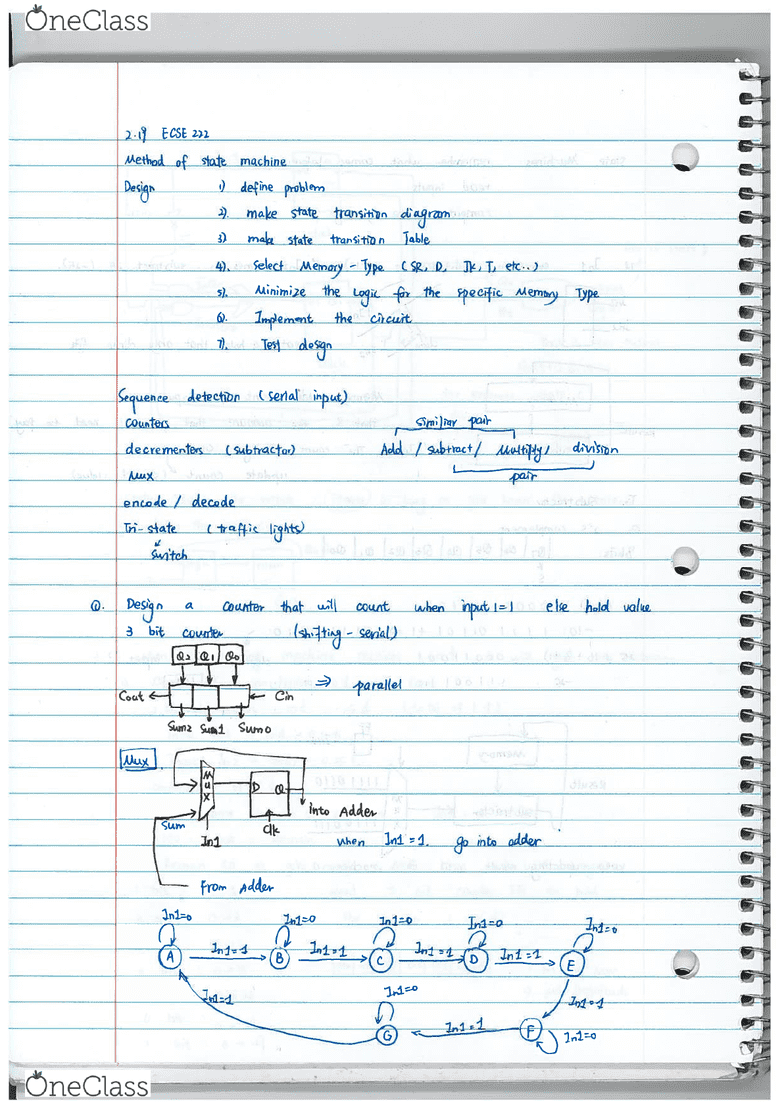 OneClass
2.19 ECSE 222
Method of state machine
Design 1) define problem
2). make state transition diagram
3) make state transition Table
4). Select Memory-Type (SR, D, Jk, T, etc..)
5). Minimize the Logic for the specific Memory Type
6). Implement the circuit
7). Test design
Sequence detection (serial input)
counters similiar pair
decrementers (subtractor) Add / subtract / Multiply, division
Mux pair
encode / decode
Tri-state (traffic lights)
Switch
Q. Design a counter that will count when input1=1 else hold value
3 bit counter (shifting-serial)
Q2 Q1 Q0
Cout Cin ⇒ parallel
Sum2 Sum1 Sum0
Mux
Mux D Q
into Adder
Sum Clk
In1 when In1=1. go into adder
From Adder
In1=0 In1=0 In1=0 In1=0 In1=0
A In1=1 B In1=1 C In1=1 D In1=1 E
In1=1 In1=0 In1=1
G In1=1 F In1=0
OneClass